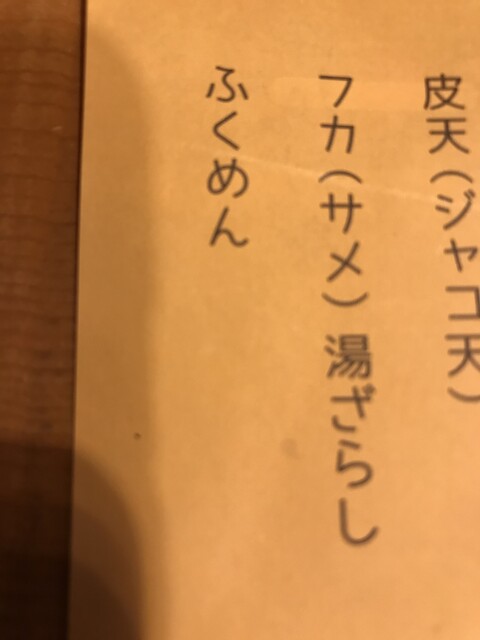 皮天（ジャコ天）
フカ（サメ）湯ざらし
ふくめん